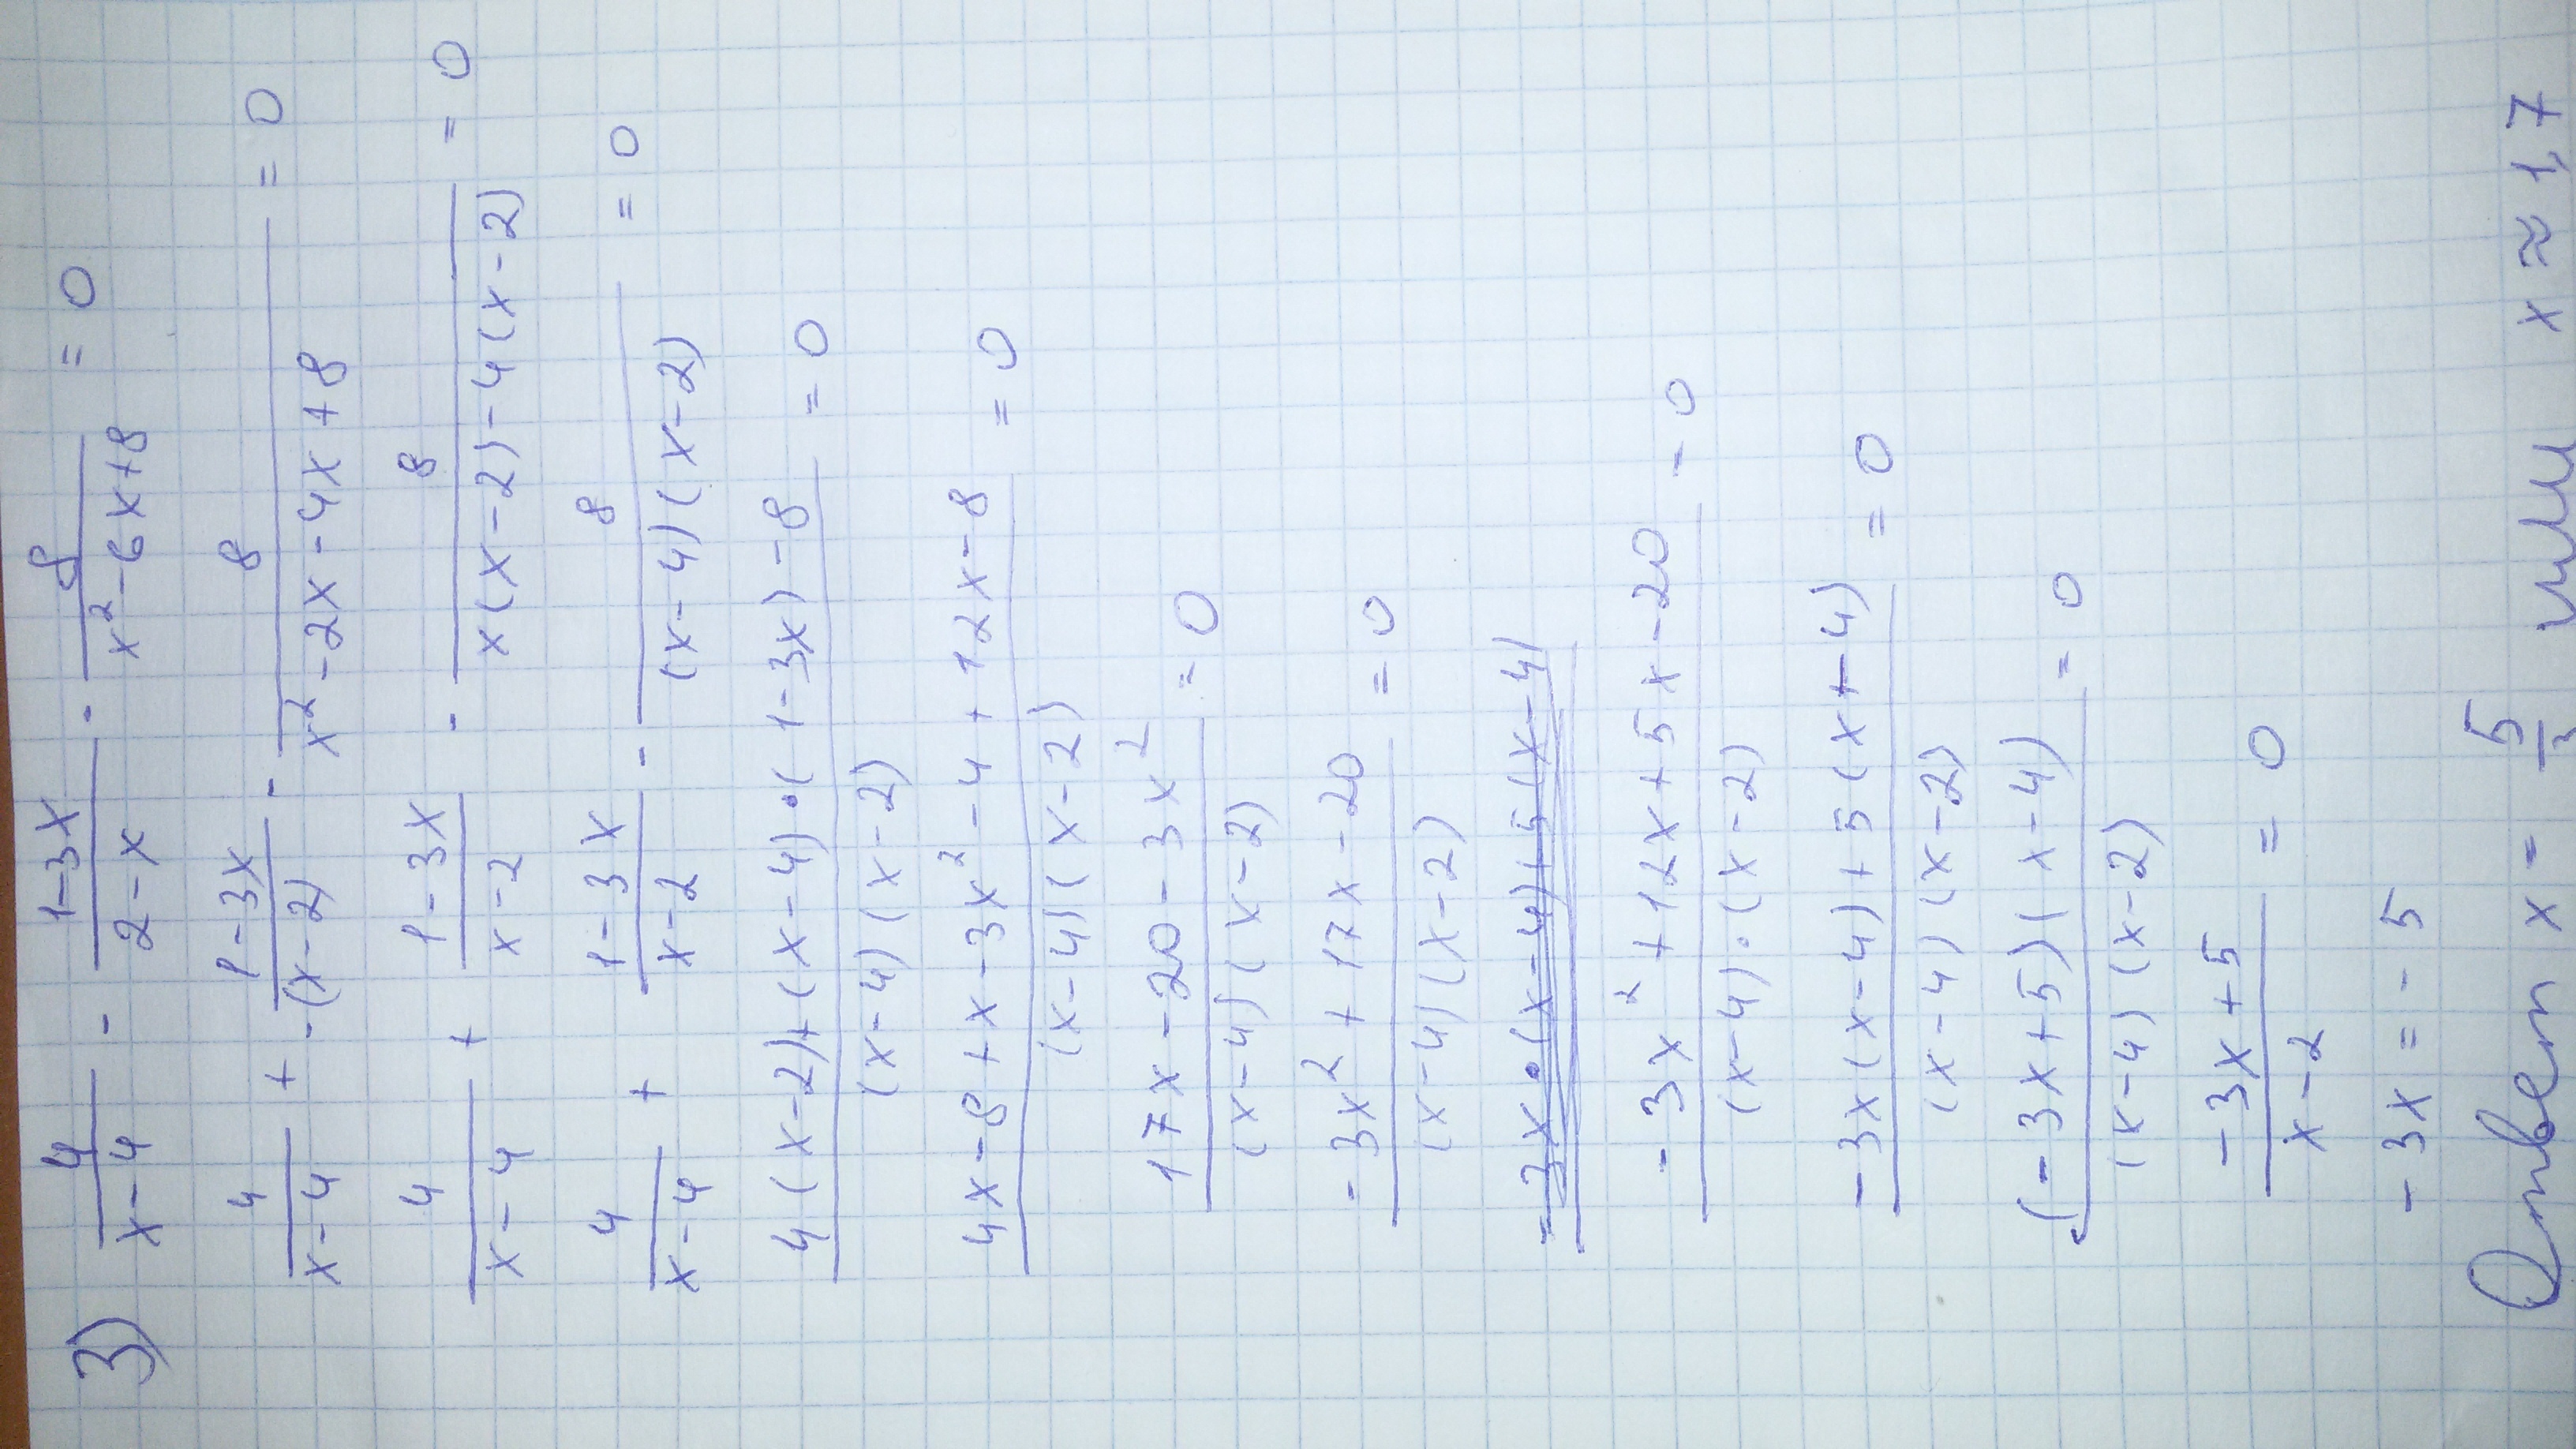 3) 4/(x-4) - (1-3x)/(2-x) - 8/(x²-6x+8) = 0
4/(x-4) + - (1-3x)/(-(x-2)) - 8/(x²-2x-4x+8) = 0
4/(x-4) + (1-3x)/(x-2) - 8/(x(x-2)-4(x-2)) = 0
4/(x-4) + (1-3x)/(x-2) - 8/((x-4)(x-2)) = 0
(4(x-2)+(x-4)·(1-3x)-8)/((x-4)(x-2)) = 0
(4x-8+x-3x²-4+12x-8)/((x-4)(x-2)) = 0
(17x-20-3x²)/((x-4)(x-2)) = 0
(-3x²+17x-20)/((x-4)(x-2)) = 0
-3x·(x-4)+5(x-4)
(-3x²+12x+5x-20)/((x-4)·(x-2)) - 0
(-3x(x-4)+5(x-4))/((x-4)(x-2)) = 0
((-3x+5)(x-4))/((x-4)(x-2)) = 0
(-3x+5)/(x-2) = 0
-3x = -5
Ответ x = 5/3 или x ≈ 1,7